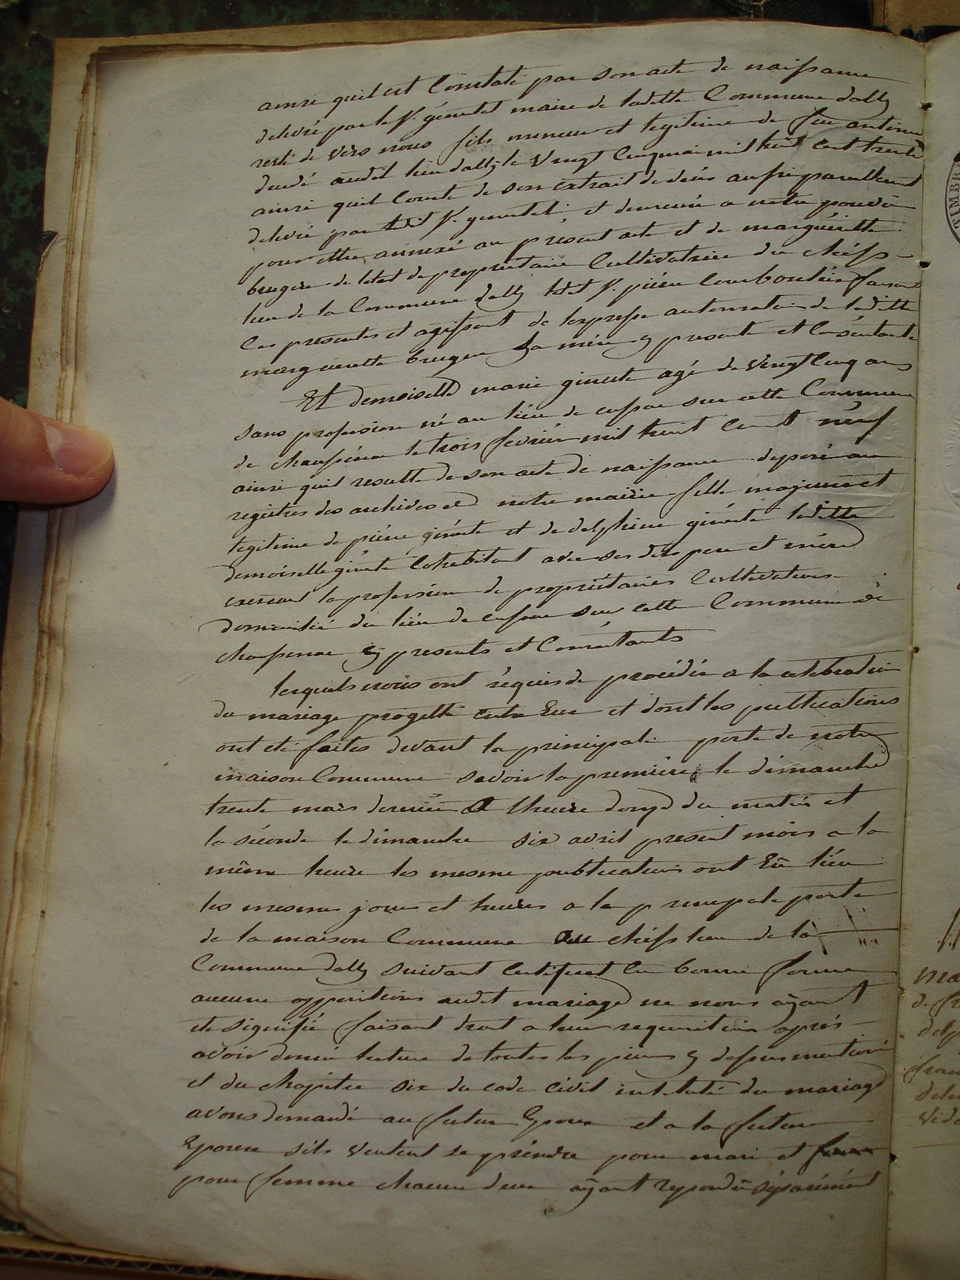 ainsi quil est Constaté par son acte de naissance
delivré par le Sr géventet maire de ladite Commune dally
resté de vers nous fils mineur et legitime de feu antoine
decedé audit lieu dally le Vingt Cinq mai mil huit cent trente
ainsi quil Conste de son extrait de décès aussi parellement
delivré par ledit Sr et demeuré a notre pouvoir
pour être annexé au présent acte et de marguéritte
brugere de letat de propriétaire Cultivatrice du chéfs
lieu de la Commune dally ledit Sr piérre Courbouleix faisant
Ces presentes et agissant de lexpresse autorisation de laditte
marguerite brugere Sa mère y presente et Consentante
Et demoiselle marie giventé agé de Vingt Cinq ans
sans proféssion né au lieu de sur cette Commune
de chaspinac le trois fevrier mil huit Cent néuf
ainsi quil resulte de son acte de naissance deposé aux
registres des archives de notre mairie fille majeure et
legitime de piérre et de delphine laditte
demoiselle Cohabitant avec ses dits pere et mère
exercent la proféssion de propriétaires Cultivateurs
domicilié du lieu de sur cette Commune de
y presents et Consentants
lesquels nous ont réquis de procédér a la celebration
du mariage progetté entre Eux et dont les publications
ont eté faites devant la principale porte de notre
maison Commune savoir la premiére le dimanche
trente mars dernier a lheure donze du matin et
la séconde le dimanche six avril present mois a la
même heure les mesme publications ont Eû lieu
les mesme jours et heures a la principale porte
de la maison Commune du chéfs lieu de la
Commune dally suivant Certificat En bonne forme
aucune opposition audit mariage ne nous ayant
eté signifié faisant droit a leur requisition aprés
avoir donné lecture de toutes les pieces y dessus mentionné
et du chapitre six du code civil intitulé du mariage
avons demandé au futur Epoux et a la future
Epouse sils veulent se préndre pour mari et
pour femme chacun deux ayant repondu séparément